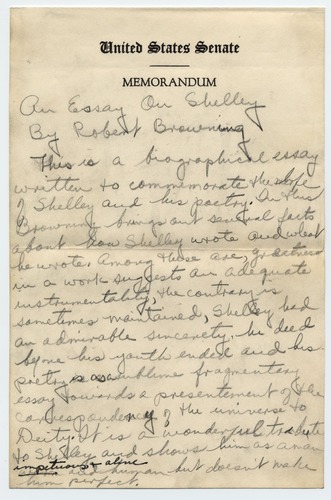 United States Senate
MEMORANDUM
An Essay On Shelley
By Robert Browning
This is a biographical essay
written to commemorate the life
of Shelley and his poetry. In this
Browning brings out several facts
about how Shelley wrote and what
he wrote. Among these are, greatness
in a work suggests an adequate
instrumentality, the contrary is
sometimes maintained, Shelley had
an admirable sincerity, he died
before his youth ended and his
poetry is a sublime fragmentary
essay towards a presentement of the
correspondency of the universe to
Deity. It is a wonderful tribute
to Shelley and shows him as a man
impetuous & alive
and human but doesn't make
him perfect.